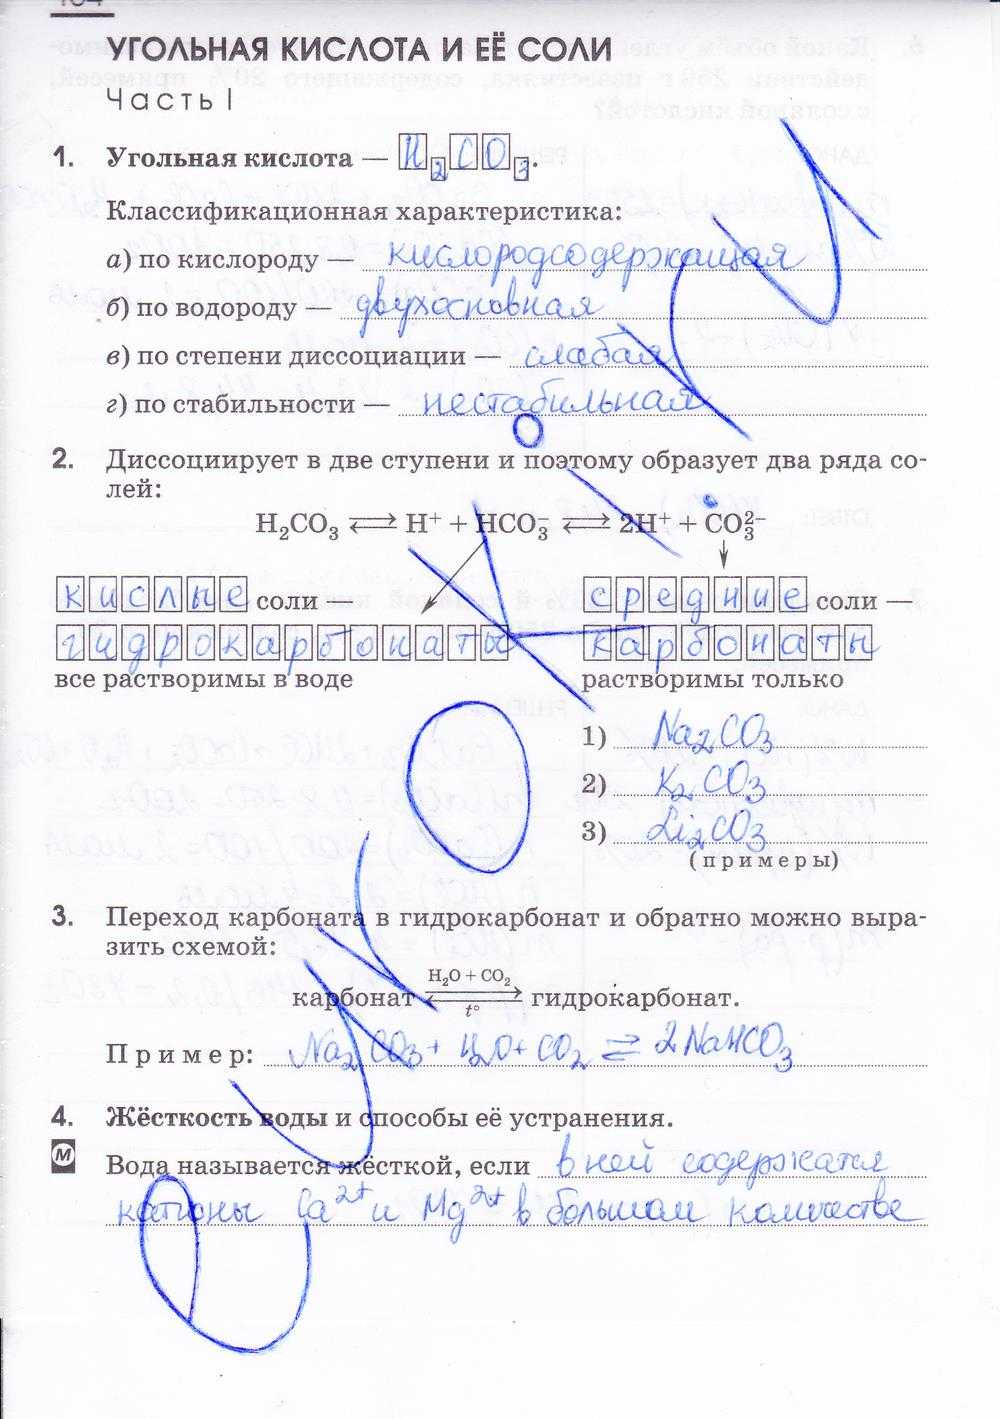 УГОЛЬНАЯ КИСЛОТА И ЕЁ СОЛИ
Часть I
1. Угольная кислота — H2CO3.
Классификационная характеристика:
а) по кислороду — кислородсодержащая
б) по водороду — двухосновная
в) по степени диссоциации — слабая
г) по стабильности — нестабильная
2. Диссоциирует в две ступени и поэтому образует два ряда со-
лей:
H₂CO₃ ⇄ H⁺ + HCO₃⁻ ⇄ 2H⁺ + CO₃²⁻
кислые соли средние соли —
гидрокарбонаты карбонаты
все растворимы в воде растворимы только
1) Na₂CO₃
2) K₂CO₃
3) Li₂CO₃
(примеры)
3. Переход карбоната в гидрокарбонат и обратно можно выра-
зить схемой:
H₂O + CO₂
карбонат ⇄ гидрокарбонат.
t°
Пример: Na₂CO₃ + H₂O + CO₂ ⇄ 2NaHCO₃
4. Жёсткость воды и способы её устранения.
М Вода называется жёсткой, если в ней содержатся
катионы Ca²⁺ и Mg²⁺ в большом количестве